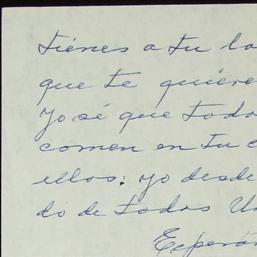 tiénes a tu la
que te quiére
Yo sé que todo
comen en tu c
ellos: yo desde
do de todos Us
Esperán